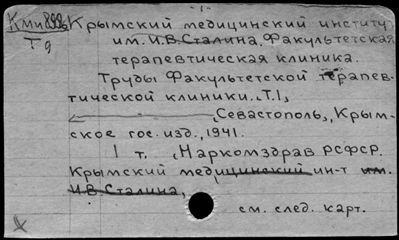 - 1 -
Крымский медицинский институт
им. И.В. Сталина. Факультетская
терапевтическая клиника.
Труды Факультетской терапев-
тической клиники. Т.I,
Севастополь, Крым-
ское гос. изд., 1941.
1 т. Наркомздрав РСФСР.
Крымский медицинский ин-т им.
И.В. Сталина,
см. след. карт.